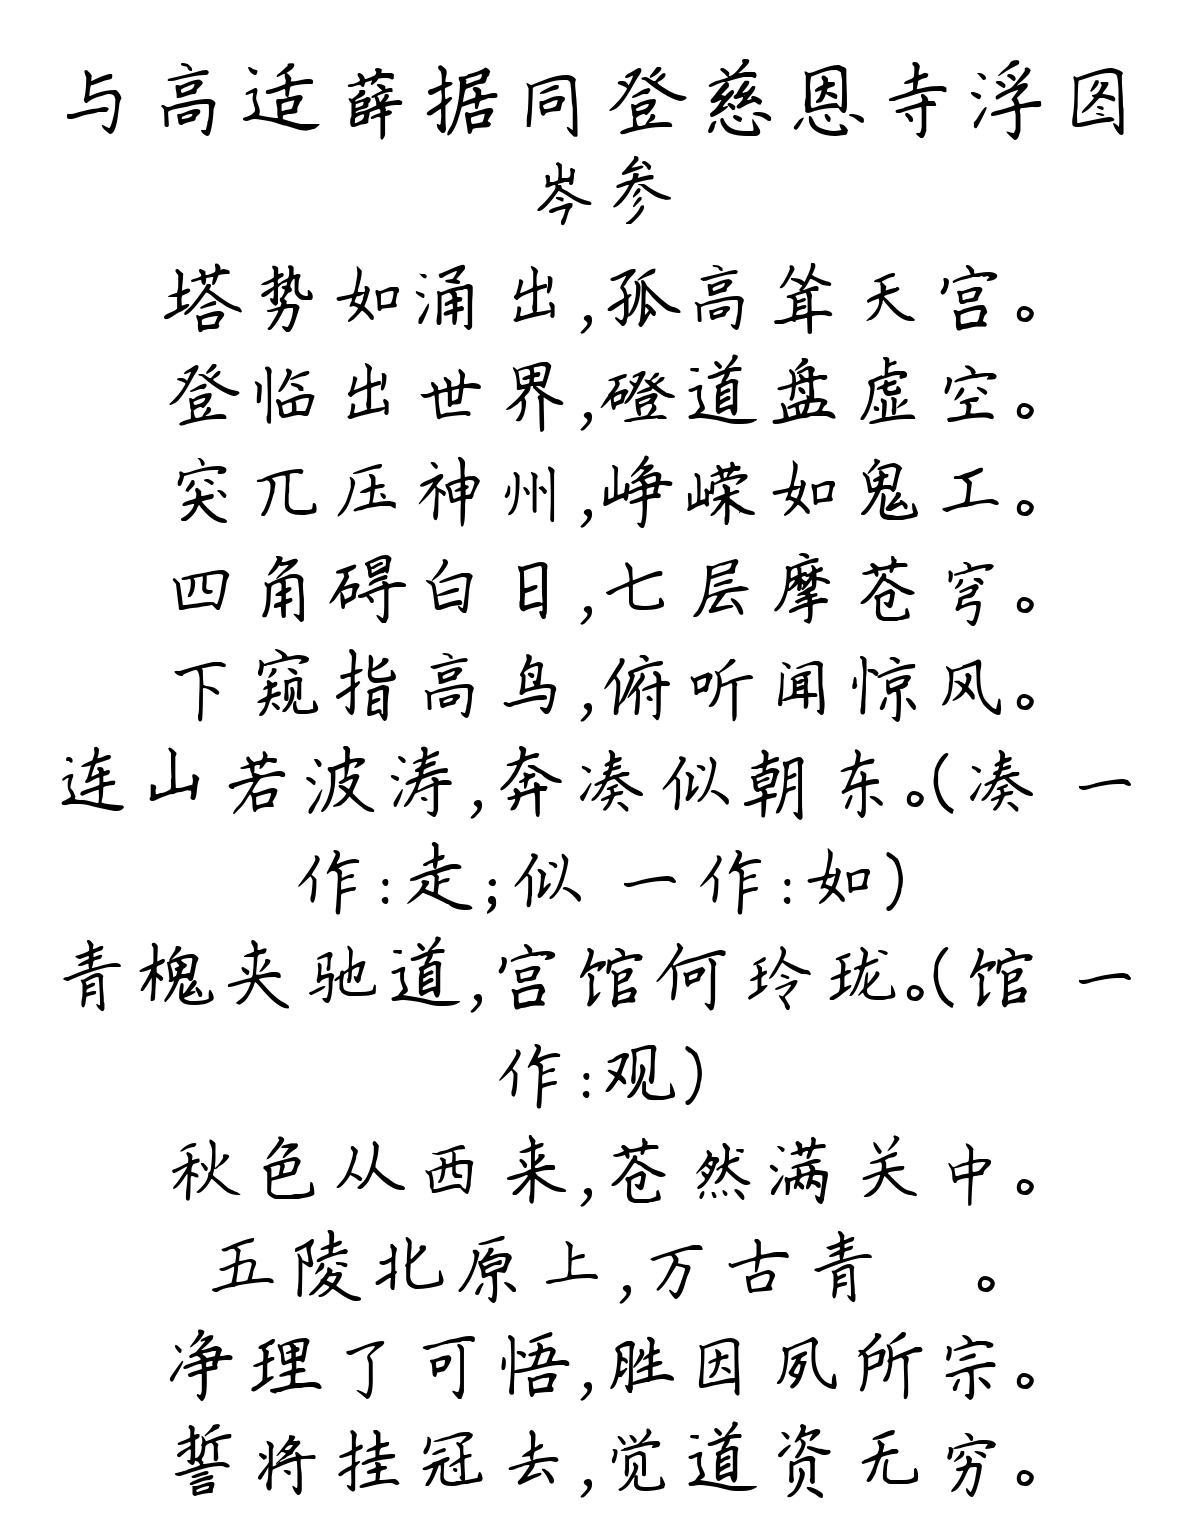 与高适薛据同登慈恩寺浮图
岑参
塔势如涌出,孤高耸天宫。
登临出世界,磴道盘虚空。
突兀压神州,峥嵘如鬼工。
四角碍白日,七层摩苍穹。
下窥指高鸟,俯听闻惊风。
连山若波涛,奔凑似朝东。(凑 一
作:走;似 一作:如)
青槐夹驰道,宫馆何玲珑。(馆 一
作:观)
秋色从西来,苍然满关中。
五陵北原上,万古青 。
净理了可悟,胜因夙所宗。
誓将挂冠去,觉道资无穷。